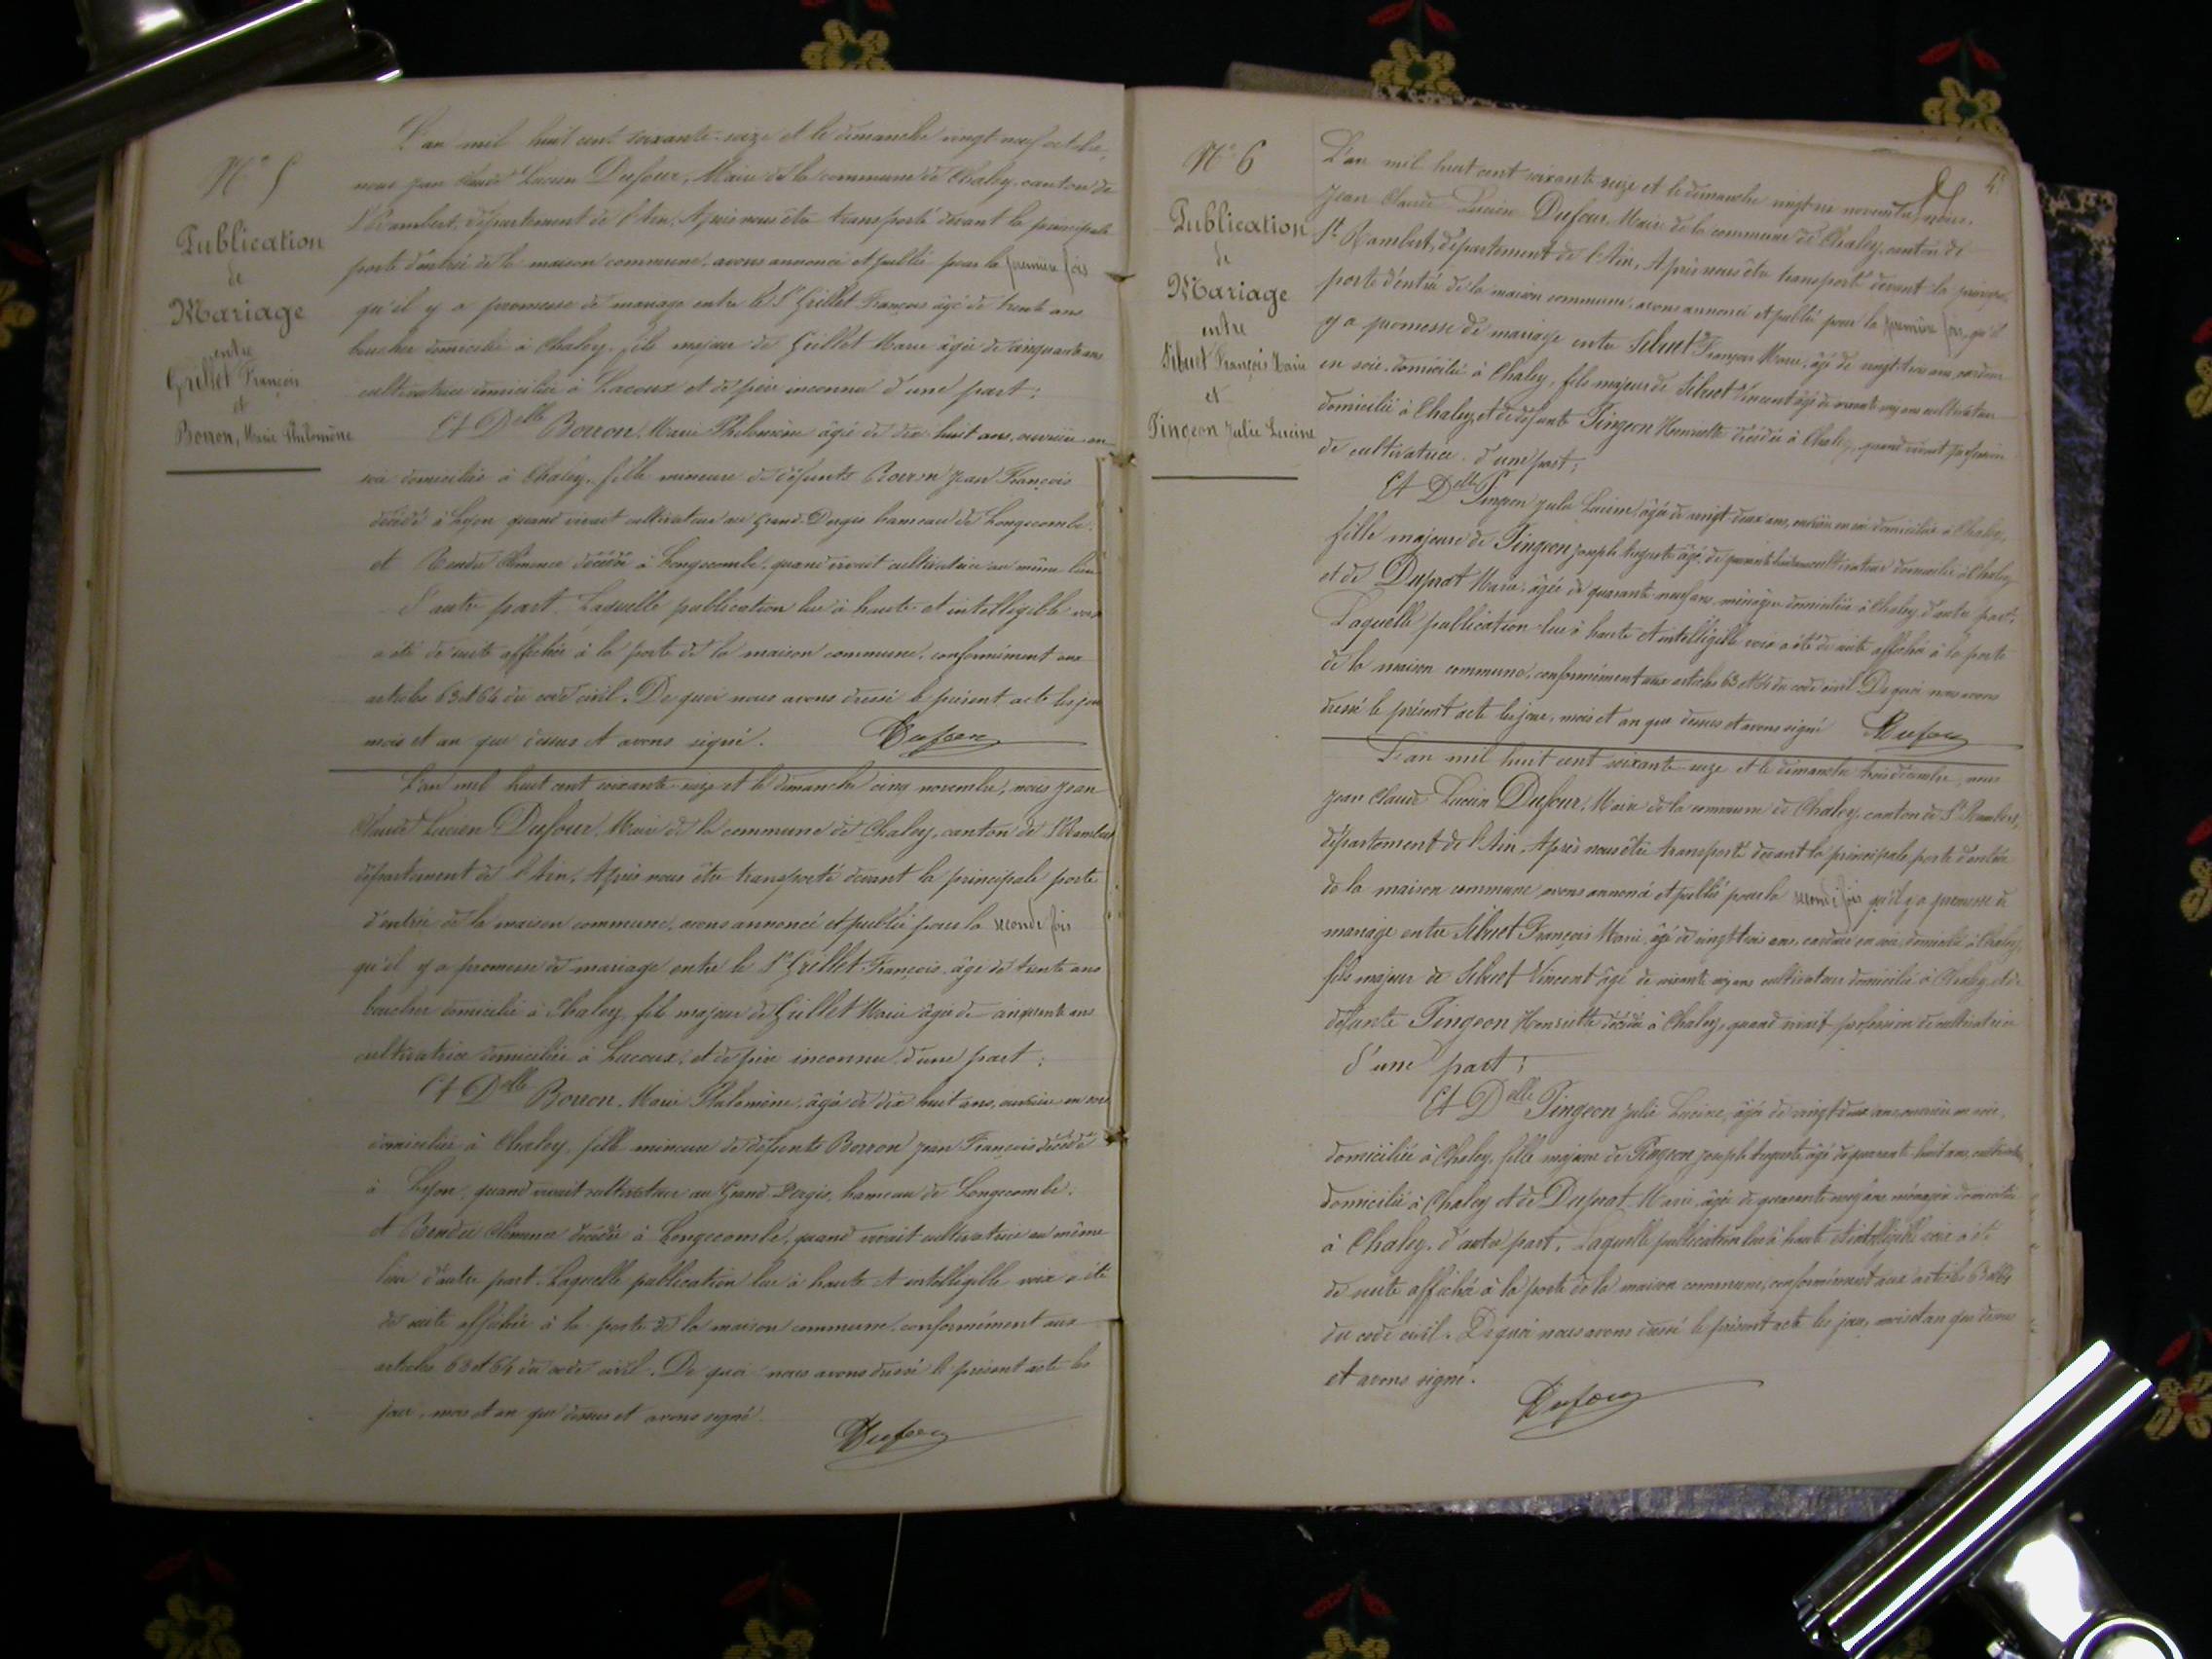 N° 5
Publication
de
Mariage
entre
Grillet François
et
Borron, Marie Philomène
L'an mil huit cent soixante-seize et le dimanche vingt neuf octobre,
nous Jean Claude Lucien Dufour, Maire de la commune de Chaley, canton de
St Rambert, département de l'Ain, Après nous être transporté devant la principale
porte d'entrée de la maison commune, avons annoncé et publié pour la première fois
qu'il y a promesse de mariage entre le Sr Grillet François âgé de trente ans
boucher domicilié à Chaley, fils majeur de Grillet Marie âgée de cinquante ans
cultivatrice domiciliée à Lacoux et de père inconnu d'une part;
Et Delle Borron, Marie Philomène âgée de dix huit ans, ouvrière en
soie domiciliée à Chaley, fille mineure de défunts Borron Jean François
décédé à Lyon quand vivait cultivateur au Grand-Dergis hameau de Longecombe,
et Rendu Clémence décédée à Longecombe, quand vivait cultivatrice au même lieu
d'autre part. Laquelle publication lue à haute et intelligible voix
a été de suite affichée à la porte de la maison commune, conformément aux
articles 63 et 64 du code civil. De quoi nous avons dressé le présent acte les jour
mois et an que dessus et avons signé. Dufour
L'an mil huit cent soixante-seize et le dimanche cinq novembre, nous Jean
Claude Lucien Dufour, Maire de la commune de Chaley, canton de St Rambert
département de l'Ain, Après nous être transporté devant la principale porte
d'entrée de la maison commune, avons annoncé et publié pour la seconde fois
qu'il y a promesse de mariage entre le Sr Grillet François âgé de trente ans
boucher domicilié à Chaley, fils majeur de Grillet Marie âgée de cinquante ans
cultivatrice domiciliée à Lacoux, et de père inconnu d'une part;
Et Delle Borron, Marie Philomène, âgée de dix huit ans, ouvrière en soie
domiciliée à Chaley, fille mineure de défunts Borron Jean François décédé
à Lyon, quand vivait cultivateur au Grand Dergis, hameau de Longecombe,
et Rendu Clémence décédée à Longecombe, quand vivait cultivatrice au même
lieu d'autre part. Laquelle publication lue à haute et intelligible voix a été
de suite affichée à la porte de la maison commune, conformément aux
articles 63 et 64 du code civil. De quoi nous avons dressé le présent acte les
jour, mois et an que dessus et avons signé.
Dufour
N° 6
Publication
de
Mariage
entre
Sibuet François Marie
et
Pingeon Julie Lucine
L'an mil huit cent soixante seize et le dimanche vingt six novembre, nous,
Jean Claude Lucien Dufour, Maire de la commune de Chaley, canton de
St Rambert, département de l'Ain, Après nous être transporté devant la
porte d'entrée de la maison commune, avons annoncé et publié pour la première fois, qu'il
y a promesse de mariage entre Sibuet François Marie, âgé de vingt-trois ans, cardeur
en soie, domicilié à Chaley, fils majeur de Sibuet Vincent âgé de soixante ans cultivateur
domicilié à Chaley, et de défunte Pingeon Henriette décédée à Chaley, quand vivait profession
de cultivatrice, d'une part;
Et Delle Pingeon Julie Lucine, âgée de vingt deux ans, ouvrière en soie domiciliée à Chaley,
fille majeure de Pingeon Joseph Auguste âgé de quarante huit ans cultivateur domicilié à Chaley
et de Duprat Marie, âgée de quarante neuf ans, ménagère domiciliée à Chaley, d'autre part.
Laquelle publication lue à haute et intelligible voix a été de suite affichée à la porte
de la maison commune, conformément aux articles 63 et 64 du code civil. De quoi nous avons
dressé le présent acte les jour, mois et an que dessus et avons signé Dufour
L'an mil huit cent soixante seize et le dimanche trois décembre, nous
Jean Claude Lucien Dufour, Maire de la commune de Chaley, canton de St Rambert,
département de l'Ain, Après nous être transporté devant la principale porte d'entrée
de la maison commune avons annoncé et publié pour la seconde fois qu'il y a promesse de
mariage entre Sibuet François Marie, âgé de vingt trois ans, cardeur en soie, domicilié à Chaley,
fils majeur de Sibuet Vincent âgé de soixante ans cultivateur domicilié à Chaley, et de
défunte Pingeon Henriette décédée à Chaley, quand vivait profession de cultivatrice
d'une part;
Et Delle Pingeon Julie Lucine, âgée de vingt deux ans, ouvrière en soie,
domiciliée à Chaley, fille majeure de Pingeon Joseph Auguste, âgé de quarante huit ans, cultivateur
domicilié à Chaley et de Duprat Marie, âgée de quarante neuf ans ménagère domiciliée
à Chaley, d'autre part. Laquelle publication lue à haute et intelligible voix a été
de suite affichée à la porte de la maison commune, conformément aux articles 63 et 64
du code civil. De quoi nous avons dressé le présent acte les jour, mois et an que dessus
et avons signé.
Dufour